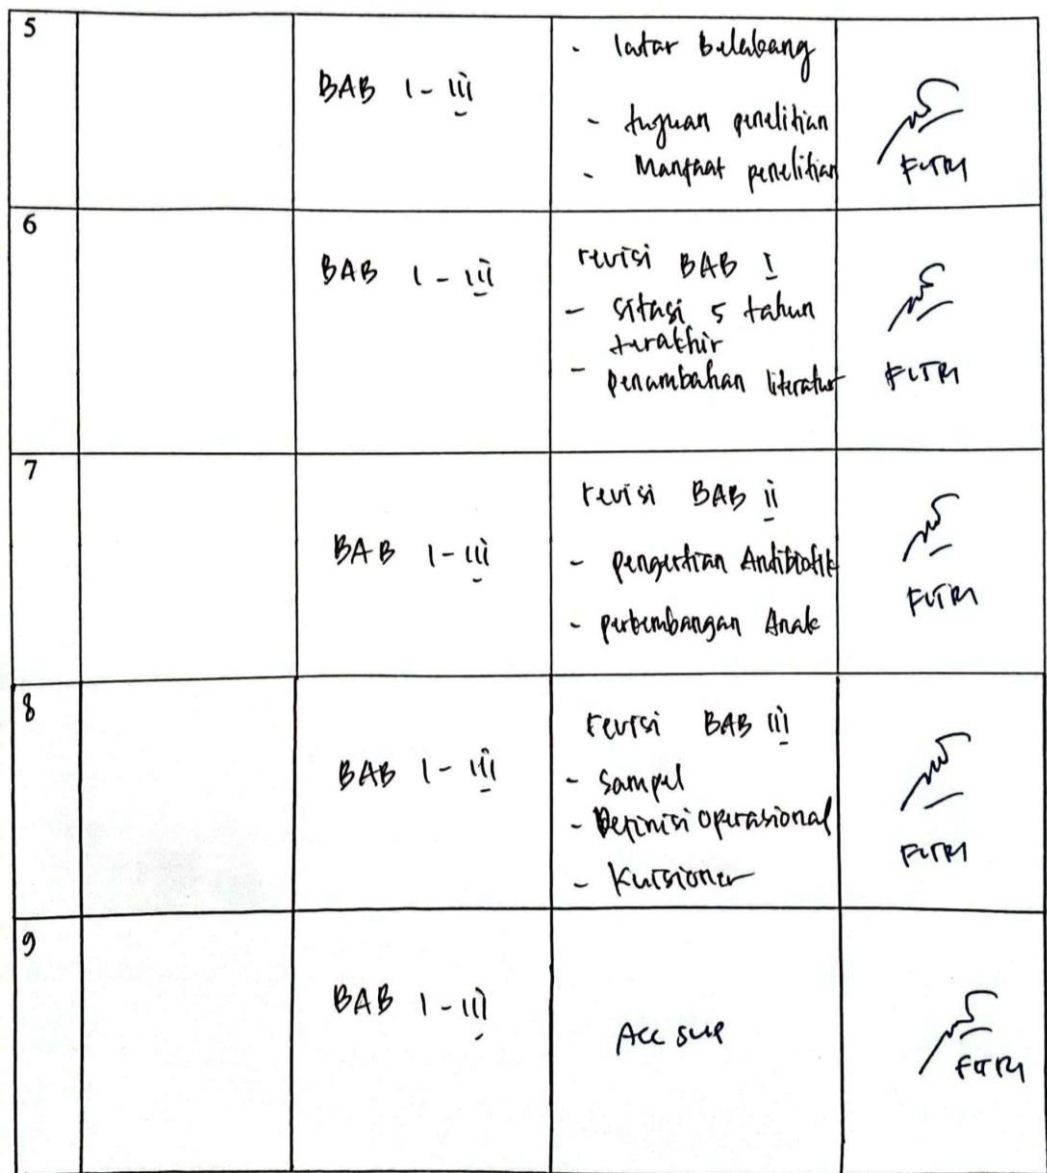 5
BAB I - III
- latar belakang
- tujuan penelitian
- Manfaat penelitian
FITRI
6
BAB I - III
revisi BAB I
- sitasi 5 tahun
terakhir
- penambahan literatur
FITRI
7
BAB I - III
revisi BAB II
- pengertian Antibiotik
- perkembangan Anak
FITRI
8
BAB I - III
revisi BAB III
- Sampel
- Definisi operasional
- Kuisioner
FITRI
9
BAB I - III
Acc
FITRI